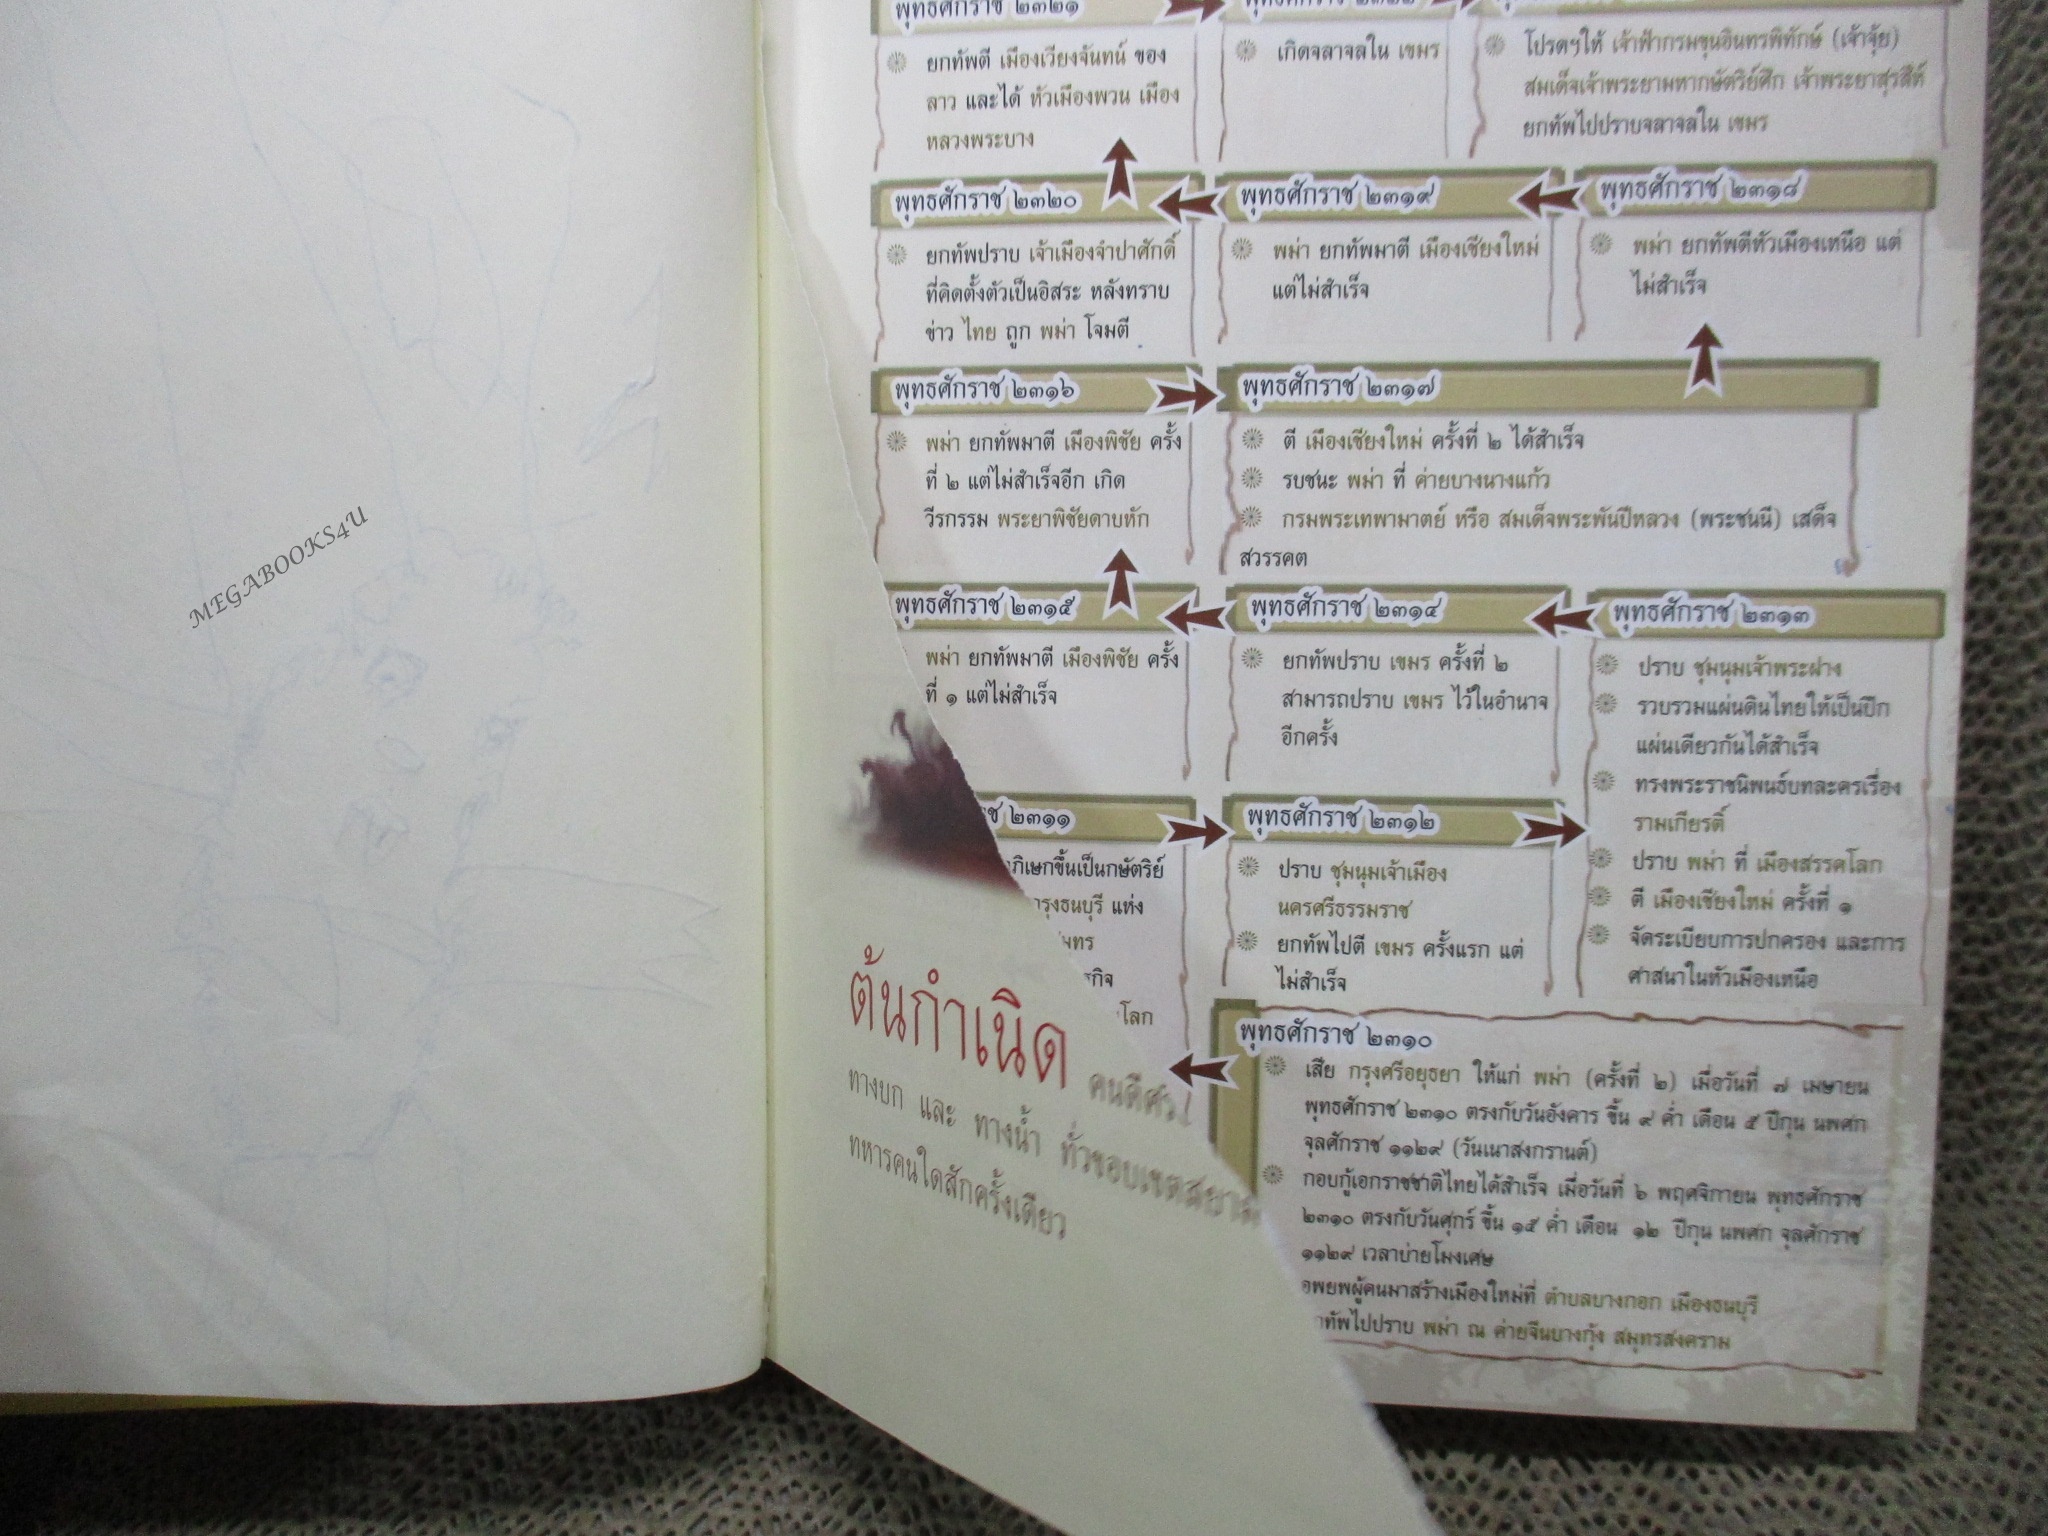 MEGABOOKS4U
พุทธศักราช ๒๓๒๑
ยกทัพตี เมืองเวียงจันทน์ ของ
ลาว และได้ หัวเมืองพวน เมือง
หลวงพระบาง
เกิดจลาจลใน เขมร
โปรดฯให้ เจ้าฟ้ากรมขุนอินทรพิทักษ์ (เจ้าจุ้ย)
สมเด็จเจ้าพระยามหากษัตริย์ศึก เจ้าพระยาสุรสีห์
ยกทัพไปปราบจลาจลใน เขมร
พุทธศักราช ๒๓๒๐
ยกทัพปราบ เจ้าเมืองจำปาศักดิ์
ที่คิดตั้งตัวเป็นอิสระ หลังทราบ
ข่าว ไทย ถูก พม่า โจมตี
พุทธศักราช ๒๓๑๙
พม่า ยกทัพมาตี เมืองเชียงใหม่
แต่ไม่สำเร็จ
พุทธศักราช ๒๓๑๘
พม่า ยกทัพตีหัวเมืองเหนือ แต่
ไม่สำเร็จ
พุทธศักราช ๒๓๑๖
พม่า ยกทัพมาตี เมืองพิชัย ครั้ง
ที่ ๒ แต่ไม่สำเร็จอีก เกิด
วีรกรรม พระยาพิชัยดาบหัก
พุทธศักราช ๒๓๑๗
ตี เมืองเชียงใหม่ ครั้งที่ ๒ ได้สำเร็จ
รบชนะ พม่า ที่ ค่ายบางนางแก้ว
กรมพระเทพามาตย์ หรือ สมเด็จพระพันปีหลวง (พระชนนี) เสด็จ
สวรรคต
พุทธศักราช ๒๓๑๕
พม่า ยกทัพมาตี เมืองพิชัย ครั้ง
ที่ ๑ แต่ไม่สำเร็จ
พุทธศักราช ๒๓๑๔
ยกทัพปราบ เขมร ครั้งที่ ๒
สามารถปราบ เขมร ไว้ในอำนาจ
อีกครั้ง
พุทธศักราช ๒๓๑๓
ปราบ ชุมนุมเจ้าพระฝาง
รวบรวมแผ่นดินไทยให้เป็นปึก
แผ่นเดียวกันได้สำเร็จ
ทรงพระราชนิพนธ์บทละครเรื่อง
รามเกียรติ์
ปราบ พม่า ที่ เมืองสรรคโลก
ตี เมืองเชียงใหม่ ครั้งที่ ๑
จัดระเบียบการปกครอง และการ
ศาสนาในหัวเมืองเหนือ
๒๓๑๑
ภิเษกขึ้นเป็นกษัตริย์
กรุงธนบุรี แห่ง
โลก
พุทธศักราช ๒๓๑๒
ปราบ ชุมนุมเจ้าเมือง
นครศรีธรรมราช
ยกทัพไปตี เขมร ครั้งแรก แต่
ไม่สำเร็จ
พุทธศักราช ๒๓๑๐
เสีย กรุงศรีอยุธยา ให้แก่ พม่า (ครั้งที่ ๒) เมื่อวันที่ ๗ เมษายน
พุทธศักราช ๒๓๑๐ ตรงกับวันอังคาร ขึ้น ๙ ค่ำ เดือน ๕ ปีกุน นพศก
จุลศักราช ๑๑๒๙ (วันเนาสงกรานต์)
กอบกู้เอกราชชาติไทยได้สำเร็จ เมื่อวันที่ ๖ พฤศจิกายน พุทธศักราช
๒๓๑๐ ตรงกับวันศุกร์ ขึ้น ๑๕ ค่ำ เดือน ๑๒ ปีกุน นพศก จุลศักราช
๑๑๒๙ เวลาบ่ายโมงเศษ
อพยพผู้คนมาสร้างเมืองใหม่ที่ ตำบลบางกอก เมืองธนบุรี
ทัพไปปราบ พม่า ณ ค่ายจีนบางกุ้ง สมุทรสงคราม
ต้นกำเนิด คนดีศรี
ทางบก และ ทางน้ำ ทั่วขอบเขตสยาม
ทหารคนใดสักครั้งเดียว